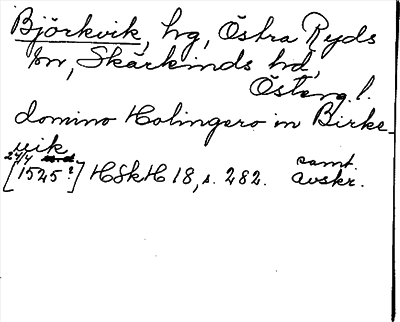 Björkvik, hg, Östra Ryds
sn, Skärkinds hd,
Östergl.
domino Holingero in Birke-
vik
24/4
[1525?] HSkH 18, s. 282. samt.
avskr.